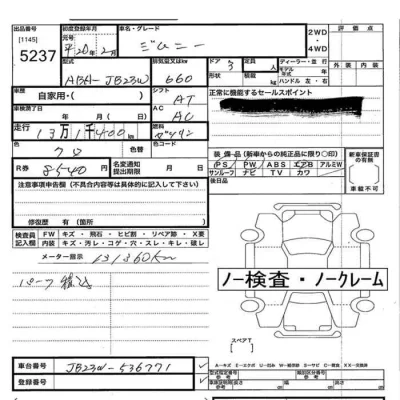 出品番号
[1145]
5237
初度登録年月
元号
平20年2月
車名・グレード
ジムニー
2WD
・
4WD
評価点
外装
内装
型式
ABA-JB23W
排気量ccまたはkw
660
ドア
3
形状
定員
人
積載
kg
ディーラー・並行
モデル
年式
年
ハンドル 左・右
車歴
自家用・( )
シフト
AT
車検満了日
年 月 日
AC
AC
走行
13万1千400km
燃料
ガソリン
色
クロ
色替
色コード
R券
8540
名変通知
提出期限
月 日
正常に機能するセールスポイント
装備品(新車からの純正品に限り〇印)
PS PW ABS エアB アルミW
サンルーフ ナビ TV カワ
後日品
新車保証書
の有無
車載不可
注意事項申告欄(不具合内容等は具体的に記入して下さい)
修復歴 有(箇所)
検査員
記入欄
FW キズ・飛石・ヒビ割・リペア跡・X要
内装 キズ・汚レ・コゲ・穴・スレ・キレ・破レ
メーター指示 131360km
パーツ積込
ノー検査・ノークレーム
スペアT
車台番号
JB23W-536771
登録番号